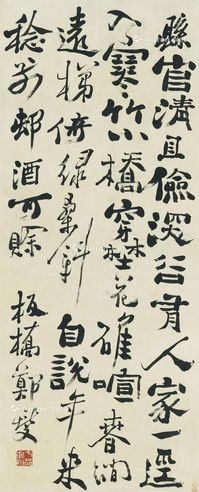 縣官清且儉深谷有人家一逕
入寒竹小橋穿埜花碓喧春澗
遠梯倚綠桑斜自說年來
稔前邨酒可賒
板橋鄭燮